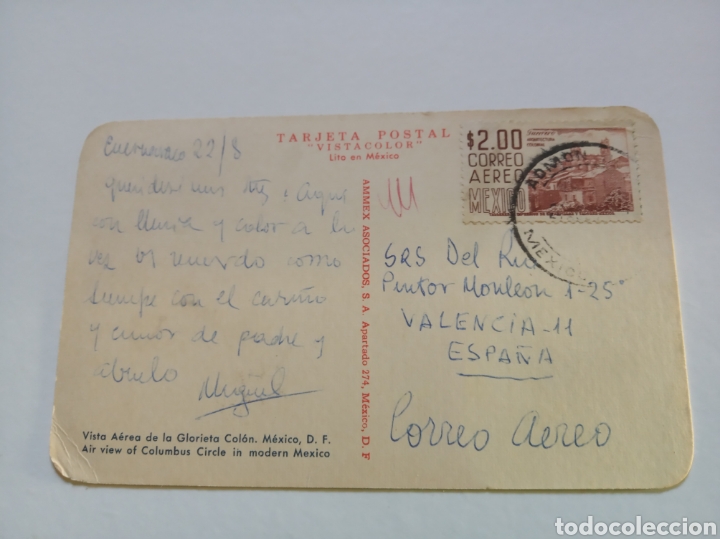 TARJETA POSTAL
"VISTACOLOR"
Lito en México
Cuernavaca 22/8
queridisimos Aqui
con lluvia y calor a la
vez os recuerdo como
siempre con el cariño
y amor de padre y
abuelo Miguel
Vista Aérea de la Glorieta Colón. México, D. F.
Air view of Columbus Circle in modern Mexico
AMMEX ASOCIADOS, S. A. Apartado 274, México, D. F
$2.00
CORREO
AEREO
MEXICO
ARQUITECTURA
ADMON
MEXICO
SRS Del
Pintor Monleon 1-25ª
VALENCIA-11
ESPAÑA
Correo Aereo
todocoleccion